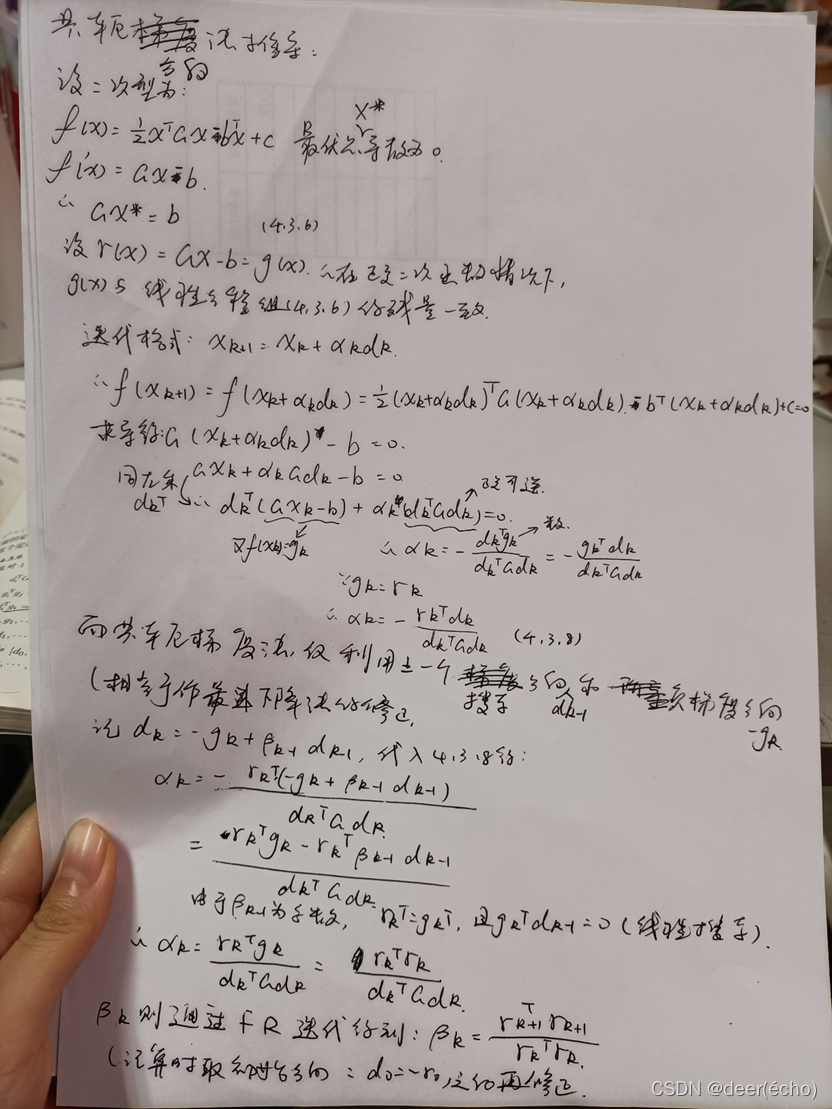 共轭方向法推导:
设二次型为:
f(x) = ½xᵀGx - bᵀx + c 最优点x*导数为0.
f'(x) = Gx - b.
∴ Gx* = b (4.3.6)
设 r(x) = Gx - b = g(x). ∴在正定二次函数情况下,
g(x)与线性方程组(4.3.6)的残量一致.
迭代格式: xₖ₊₁ = xₖ + αₖdₖ.
∴ f(xₖ₊₁) = f(xₖ+αₖdₖ) = ½(xₖ+αₖdₖ)ᵀG(xₖ+αₖdₖ) - bᵀ(xₖ+αₖdₖ)+c=0
求导得: G(xₖ+αₖdₖ) - b = 0.
同左乘dₖᵀ Gxₖ + αₖGdₖ - b = 0
∴ dₖᵀ(Gxₖ-b) + αₖ(dₖᵀGdₖ)=0. 正定可逆.
∇f(xₖ)=gₖ ∴ αₖ = - dₖᵀgₖ / dₖᵀGdₖ = - gₖᵀdₖ / dₖᵀGdₖ 数.
∵ gₖ = rₖ
∴ αₖ = - rₖᵀdₖ / dₖᵀGdₖ (4.3.8)
而共轭梯度法,仅利用上一个搜索方向dₖ₋₁和负梯度方向-gₖ
(相当于作最速下降法的修正.
记 dₖ = -gₖ + βₖ₋₁dₖ₋₁, 代入4.3.8得:
αₖ = - rₖᵀ(-gₖ + βₖ₋₁dₖ₋₁) / dₖᵀGdₖ
= rₖᵀgₖ - rₖᵀβₖ₋₁dₖ₋₁ / dₖᵀGdₖ
由于βₖ₋₁为常数, rₖᵀ=gₖᵀ, 且gₖᵀdₖ₋₁=0 (线性搜索).
∴ αₖ = rₖᵀgₖ / dₖᵀGdₖ = rₖᵀrₖ / dₖᵀGdₖ.
βₖ则通过FR迭代得到: βₖ = rₖ₊₁ᵀrₖ₊₁ / rₖᵀrₖ.
(计算时取 : d₀=-r₀, 修正.
CSDN @deer(écho)